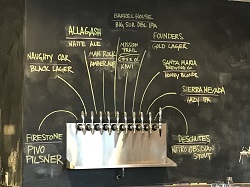 BARREL HOUSE
BIG SUR DBL IPA
ALLAGASH
WHITE ALE
MISSION
TRAIL
CIDER
KIWI
FOUNDERS
GOLD LAGER
NAUGHTY OAK
BLACK LAGER
MAN ROCK
AMBER ALE
SANTA MARIA
BREWING CO
HONEY BLONDE
SIERRA NEVADA
HAZY IPA
FIRESTONE
PIVO
PILSNER
DESCHUTES
NITRO OBSIDIAN
STOUT